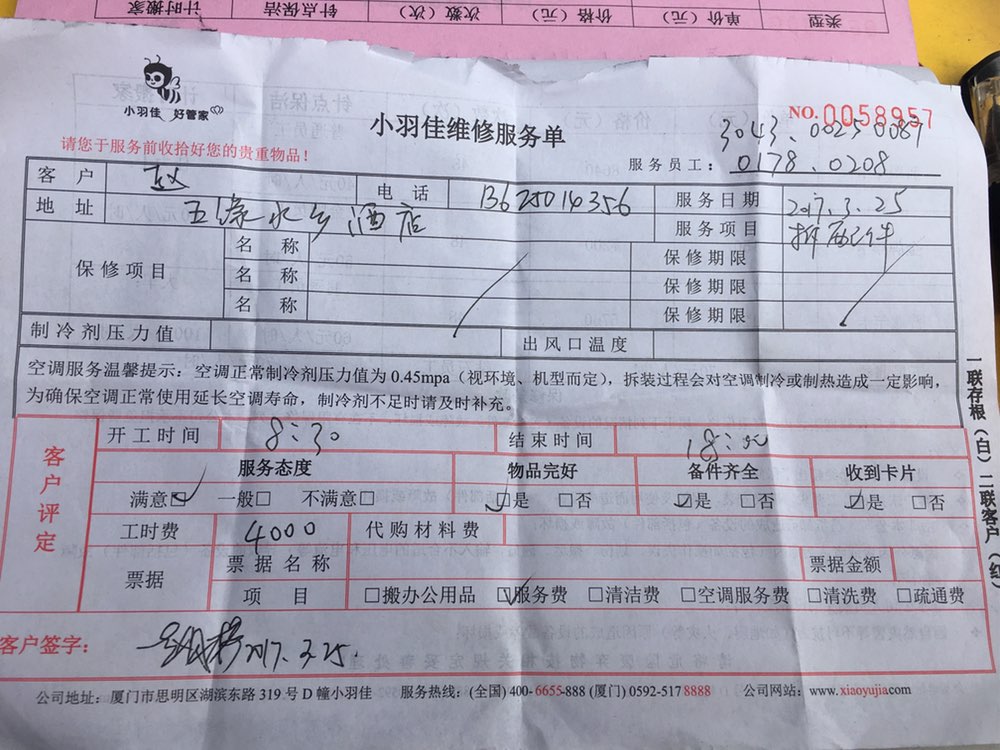 类型 单价（元） 价格（元） 次数（次） 针点保洁 计时搬家
小羽佳 好管家
小羽佳维修服务单
NO.0058957
请您于服务前收拾好您的贵重物品！
3043.0025 0089
服务员工：0178.0208
客户 电话 13625014356 服务日期 2017.3.25
地址 五缘水乡酒店 服务项目 拆配件
保修项目 名称 保修期限
名称 保修期限
名称 保修期限
制冷剂压力值 出风口温度
空调服务温馨提示：空调正常制冷剂压力值为 0.45mpa（视环境、机型而定），拆装过程会对空调制冷或制热造成一定影响，
为确保空调正常使用延长空调寿命，制冷剂不足时请及时补充。
客户评定
开工时间 8:30 结束时间 18:00
服务态度 物品完好 备件齐全 收到卡片
满意☑ 一般□ 不满意□ ☑是 □否 ☑是 □否 ☑是 □否
工时费 4000 代购材料费
票据 票据名称 票据金额
项目 □搬办公用品 ☑服务费 □清洁费 □空调服务费 □清洗费 □疏通费
客户签字： 2017.3.25.
公司地址：厦门市思明区湖滨东路 319 号 D 幢小羽佳 服务热线：(全国) 400-6655-888 (厦门) 0592-517 8888 公司网站：www.xiaoyujia.com
一联存根（白）二联客户（红